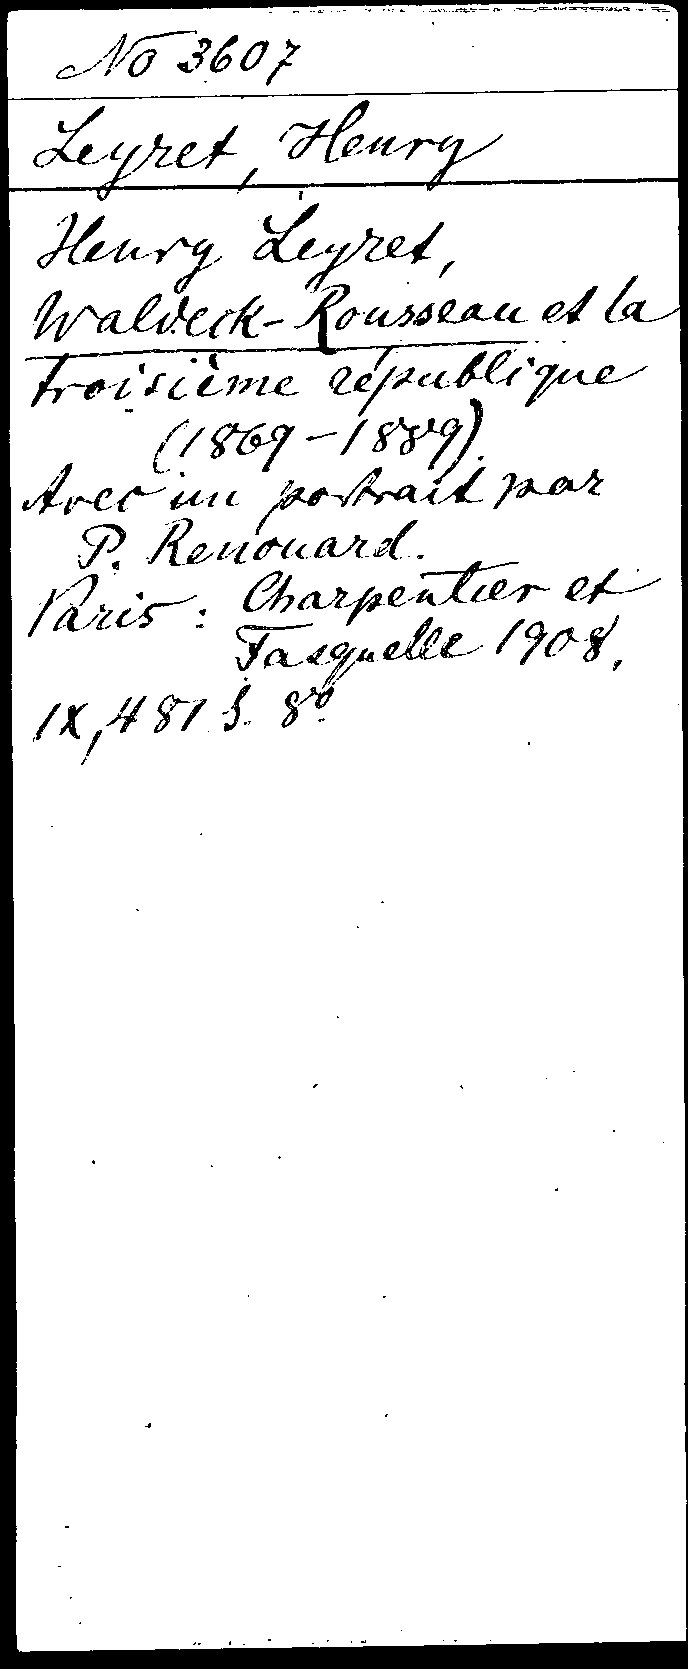 No 3607
Leyret, Henry
Henry Leyret,
Waldeck-Rousseau et la
troisième république
(1869-1889).
Avec un portrait par
P. Renouard.
Paris: Charpentier et
Fasquelle 1908.
IX, 481 S. 8°